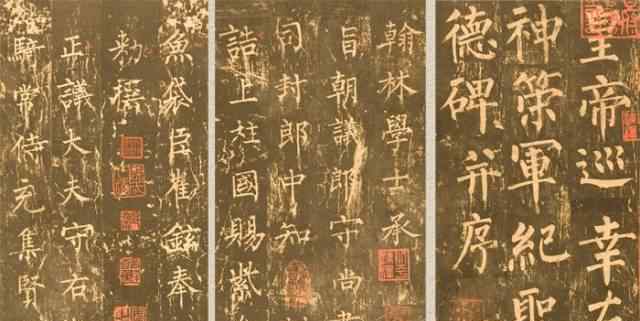 皇帝巡幸左
神策軍紀聖
德碑并序
翰林學士承
旨朝議郎守尚書
司封郎中知
誥上柱國賜紫
魚袋臣崔鉉奉
勅撰
正議大夫守右
騎常侍充集賢